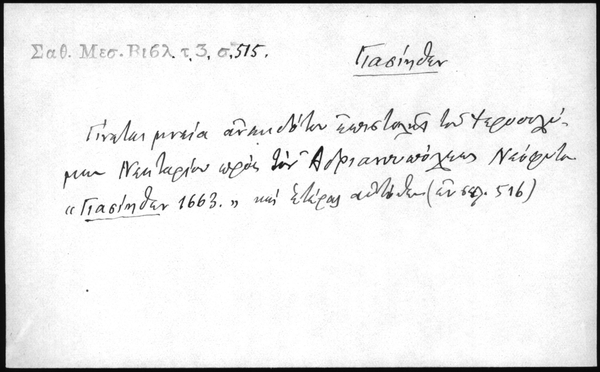 Σαθ. Μεσ. Βιβλ. τ. 3, σ. 515.
Γιασίηθεν
Γίνεται μνεία ἀνεκδότου ἐπιστολῆς τοῦ Ἱεροσολύ-
μων Νεκταρίου πρὸς τὸν Ἀδριανουπόλεως Νεόφυτον
"Γιασίηθεν 1663." καὶ ἑτέρας αὐτόθεν (ἐν σελ. 516)